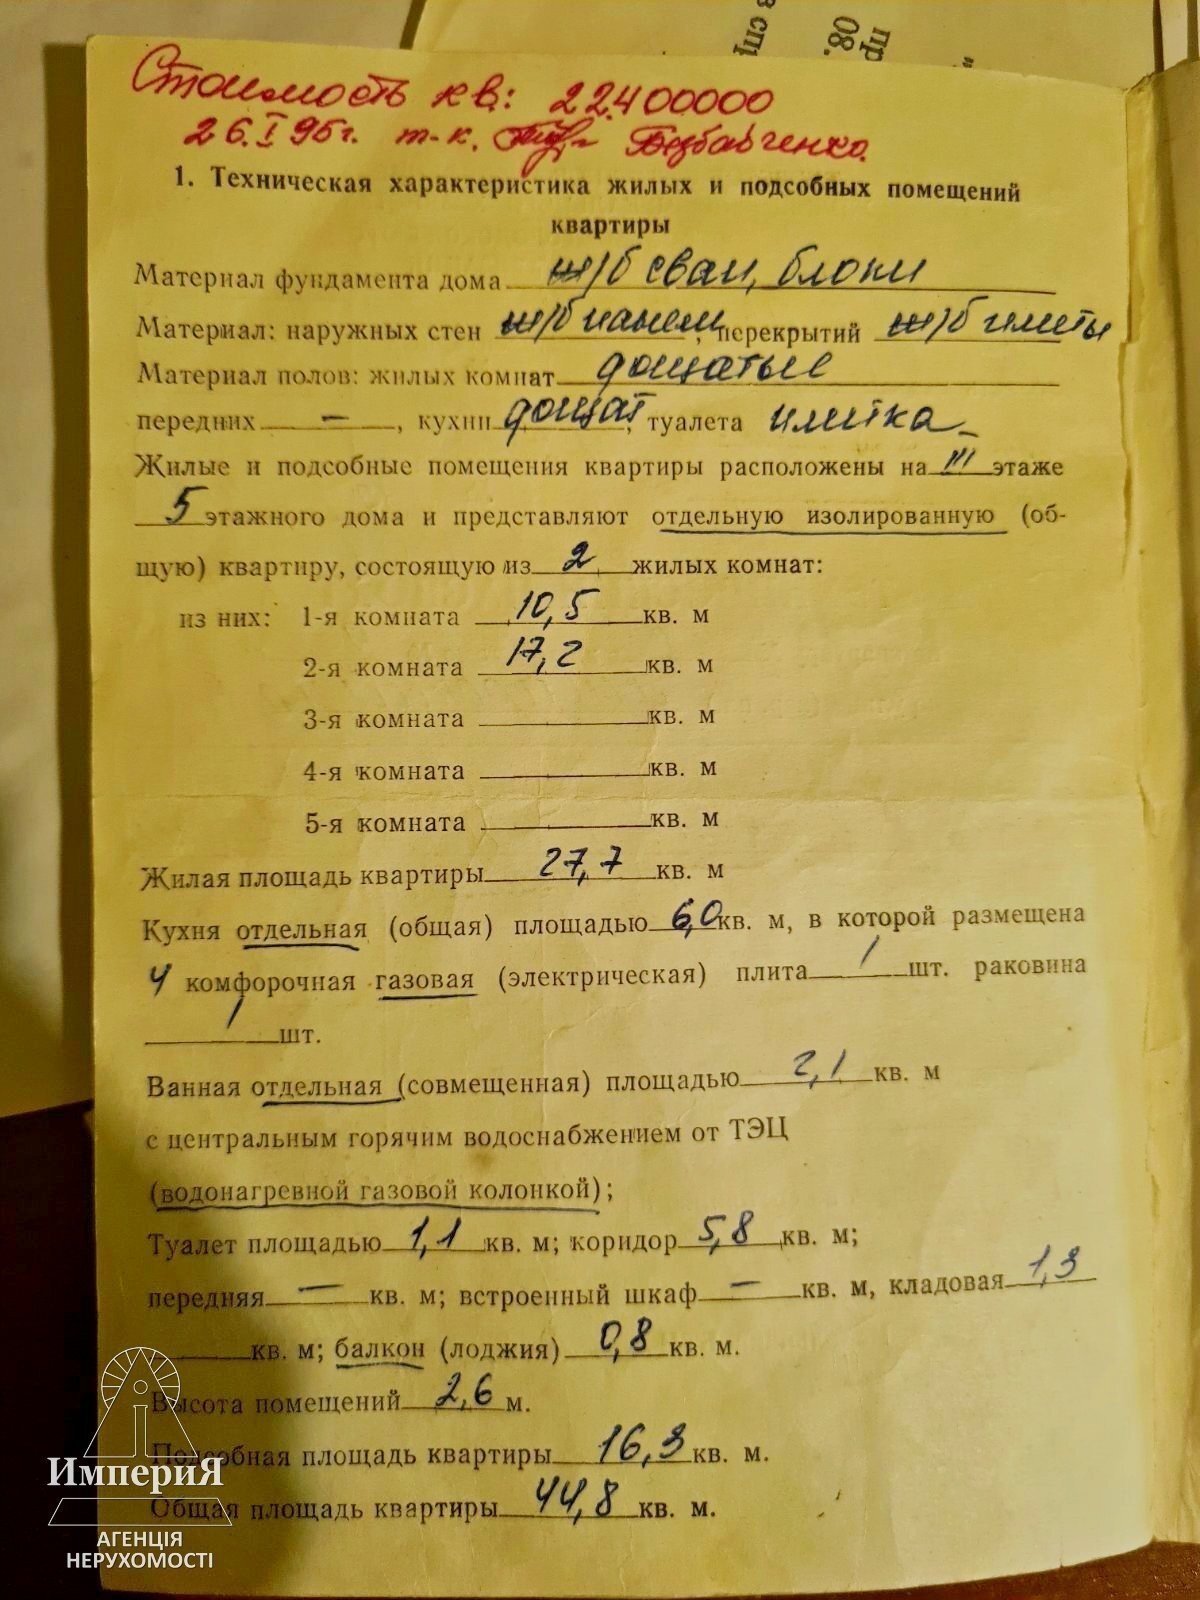 в спр
пр
08.
Стоимость кв.: 22400000
26.I 95г. т-к.
1. Техническая характеристика жилых и подсобных помещений
квартиры
Материал фундамента дома ж/б сваи, блоки
Материал: наружных стен ж/б панели, перекрытий ж/б плиты
Материал полов: жилых комнат дощатые
передних —, кухни дощат, туалета плитка
Жилые и подсобные помещения квартиры расположены на III этаже
5 этажного дома и представляют отдельную изолированную (об-
щую) квартиру, состоящую из 2 жилых комнат:
из них: 1-я комната 10,5 кв. м
2-я комната 17,2 кв. м
3-я комната кв. м
4-я комната кв. м
5-я комната кв. м
Жилая площадь квартиры 27,7 кв. м
Кухня отдельная (общая) площадью 6,0 кв. м, в которой размещена
4 комфорочная газовая (электрическая) плита 1 шт. раковина
1 шт.
Ванная отдельная (совмещенная) площадью 2,1 кв. м
с центральным горячим водоснабжением от ТЭЦ
(водонагревной газовой колонкой);
Туалет площадью 1,1 кв. м; коридор 5,8 кв. м;
передняя — кв. м; встроенный шкаф — кв. м, кладовая 1,3
кв. м; балкон (лоджия) 0,8 кв. м.
Высота помещений 2,6 м.
Подсобная площадь квартиры 16,3 кв. м.
Общая площадь квартиры 44,8 кв. м.
ИмпериЯ
АГЕНЦІЯ
НЕРУХОМОСТІ